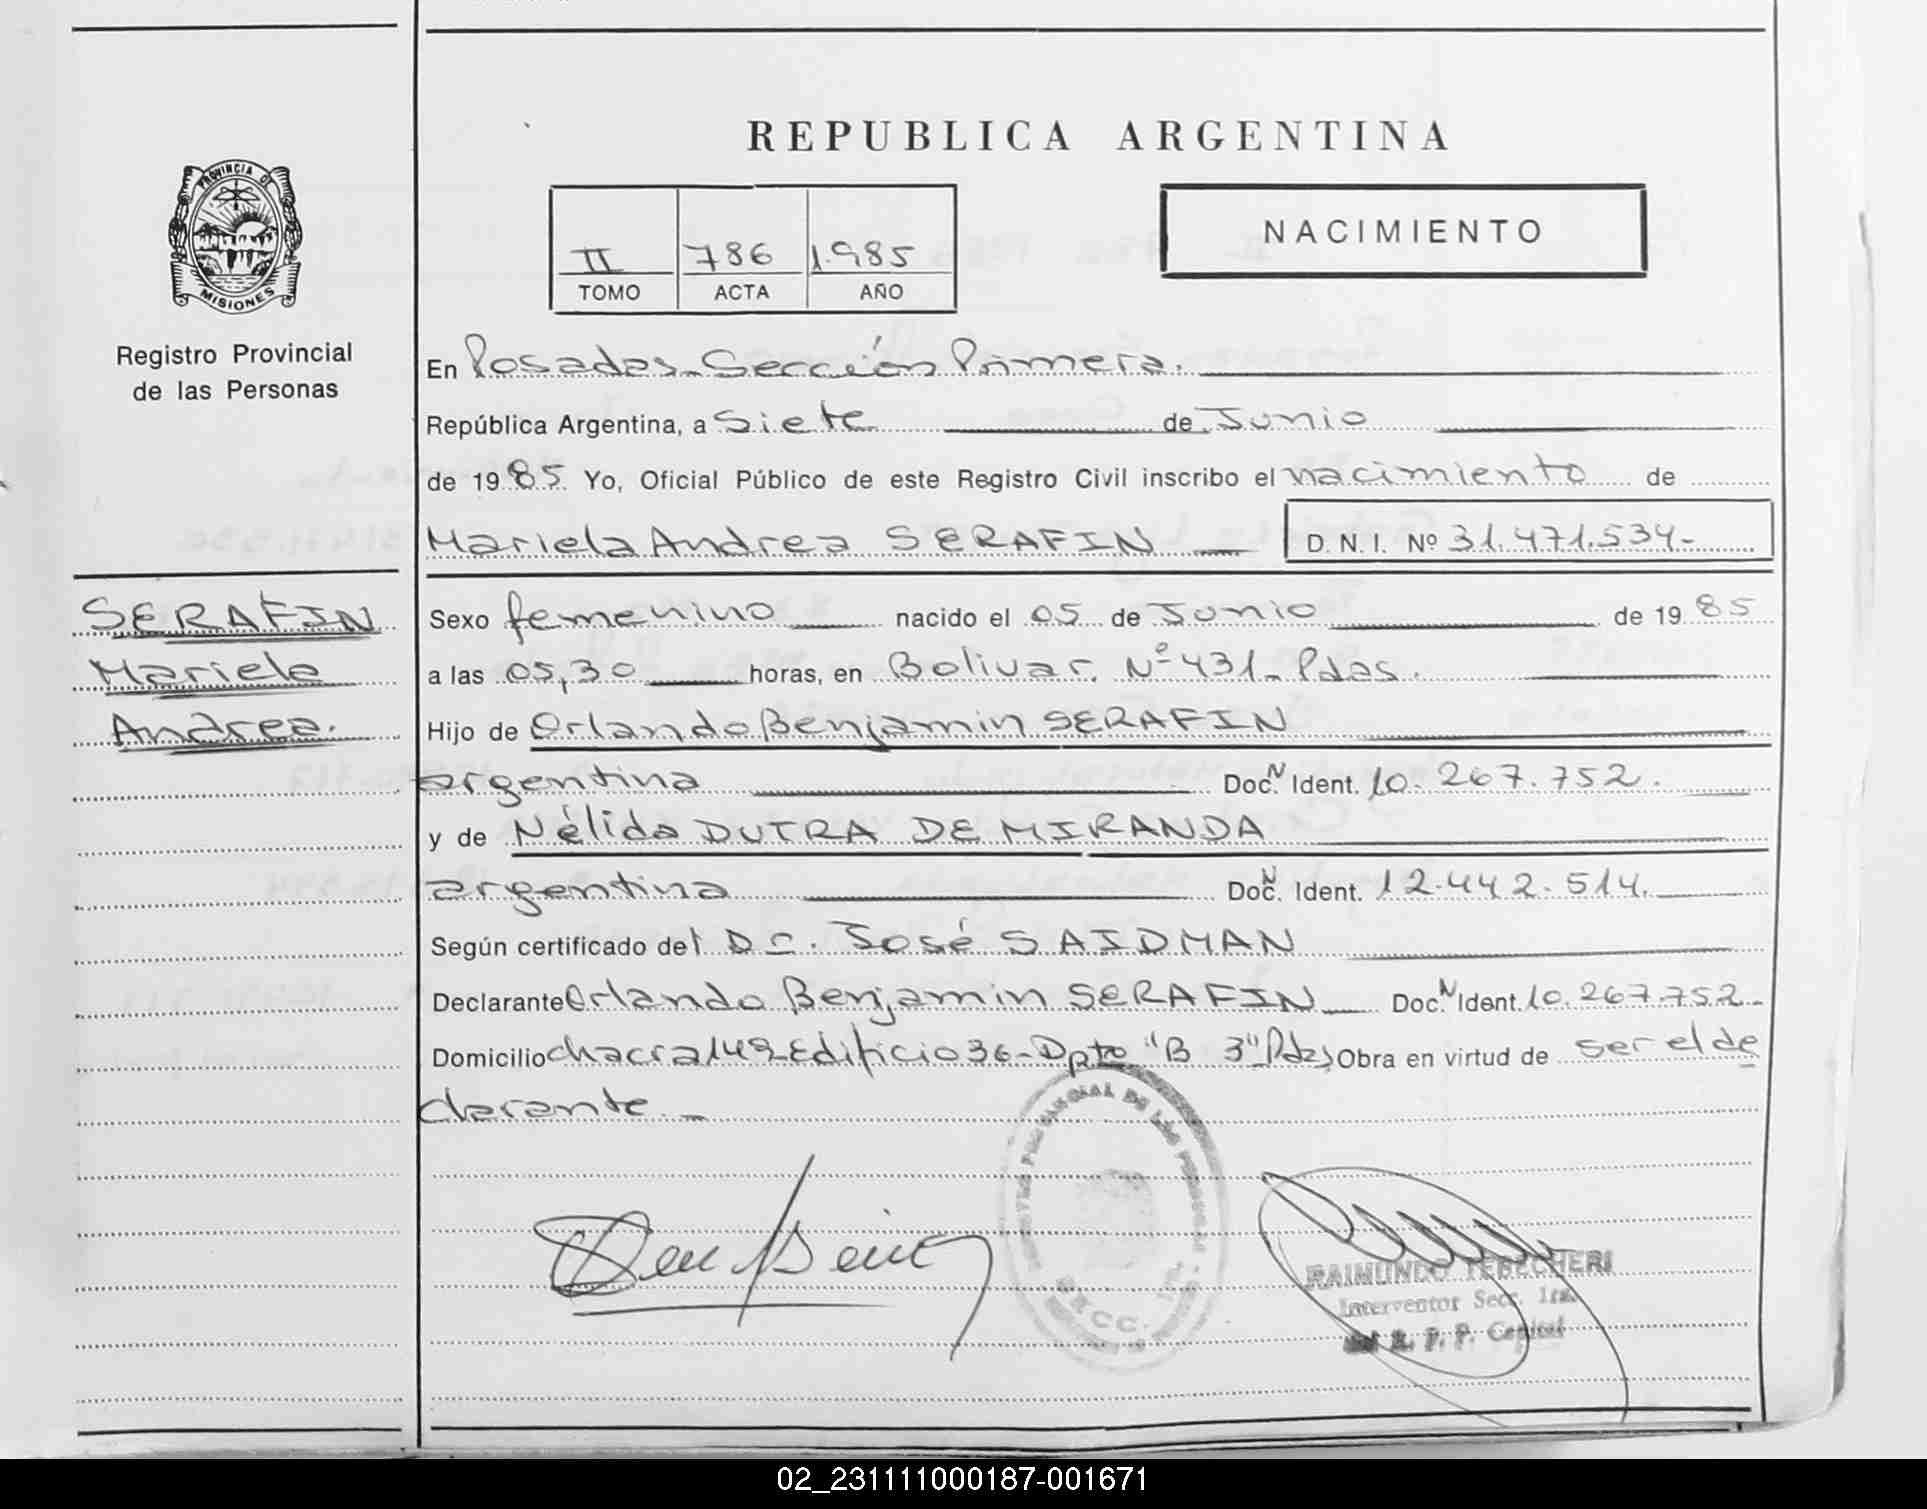 REPUBLICA ARGENTINA
PROVINCIA DE
MISIONES
Registro Provincial
de las Personas
II 786 1.985
TOMO ACTA AÑO
NACIMIENTO
En Posadas-Sección Primera.
República Argentina, a Siete de Junio
de 1985. Yo, Oficial Público de este Registro Civil inscribo el nacimiento de
Mariela Andrea SERAFIN D.N.I. Nº 31.471.534-
SERAFIN
Mariela
Andrea.
Sexo femenino nacido el 05 de Junio de 1985
a las 05,30 horas, en Bolivar. Nº 431- Pdas.
Hijo de Orlando Benjamin SERAFIN
argentina DocN. Ident. 10.267.752.
y de Nélida DUTRA DE MIRANDA
argentina DocN. Ident. 12.442.514.
Según certificado del Dr. José SAIDMAN
Declarante Orlando Benjamin SERAFIN DocN. Ident. 10.267.752-
Domicilio chacra 149 Edificio 36-Dpto "B 3" Pdas Obra en virtud de ser el de
clarante.-
PROVINCIAL DE LAS PERSONAS
SECC. 1ra.
RAIMUNDO TEBECHERI
Interventor Secc. 1ra.
del R. P. P. Capital
02_231111000187-001671